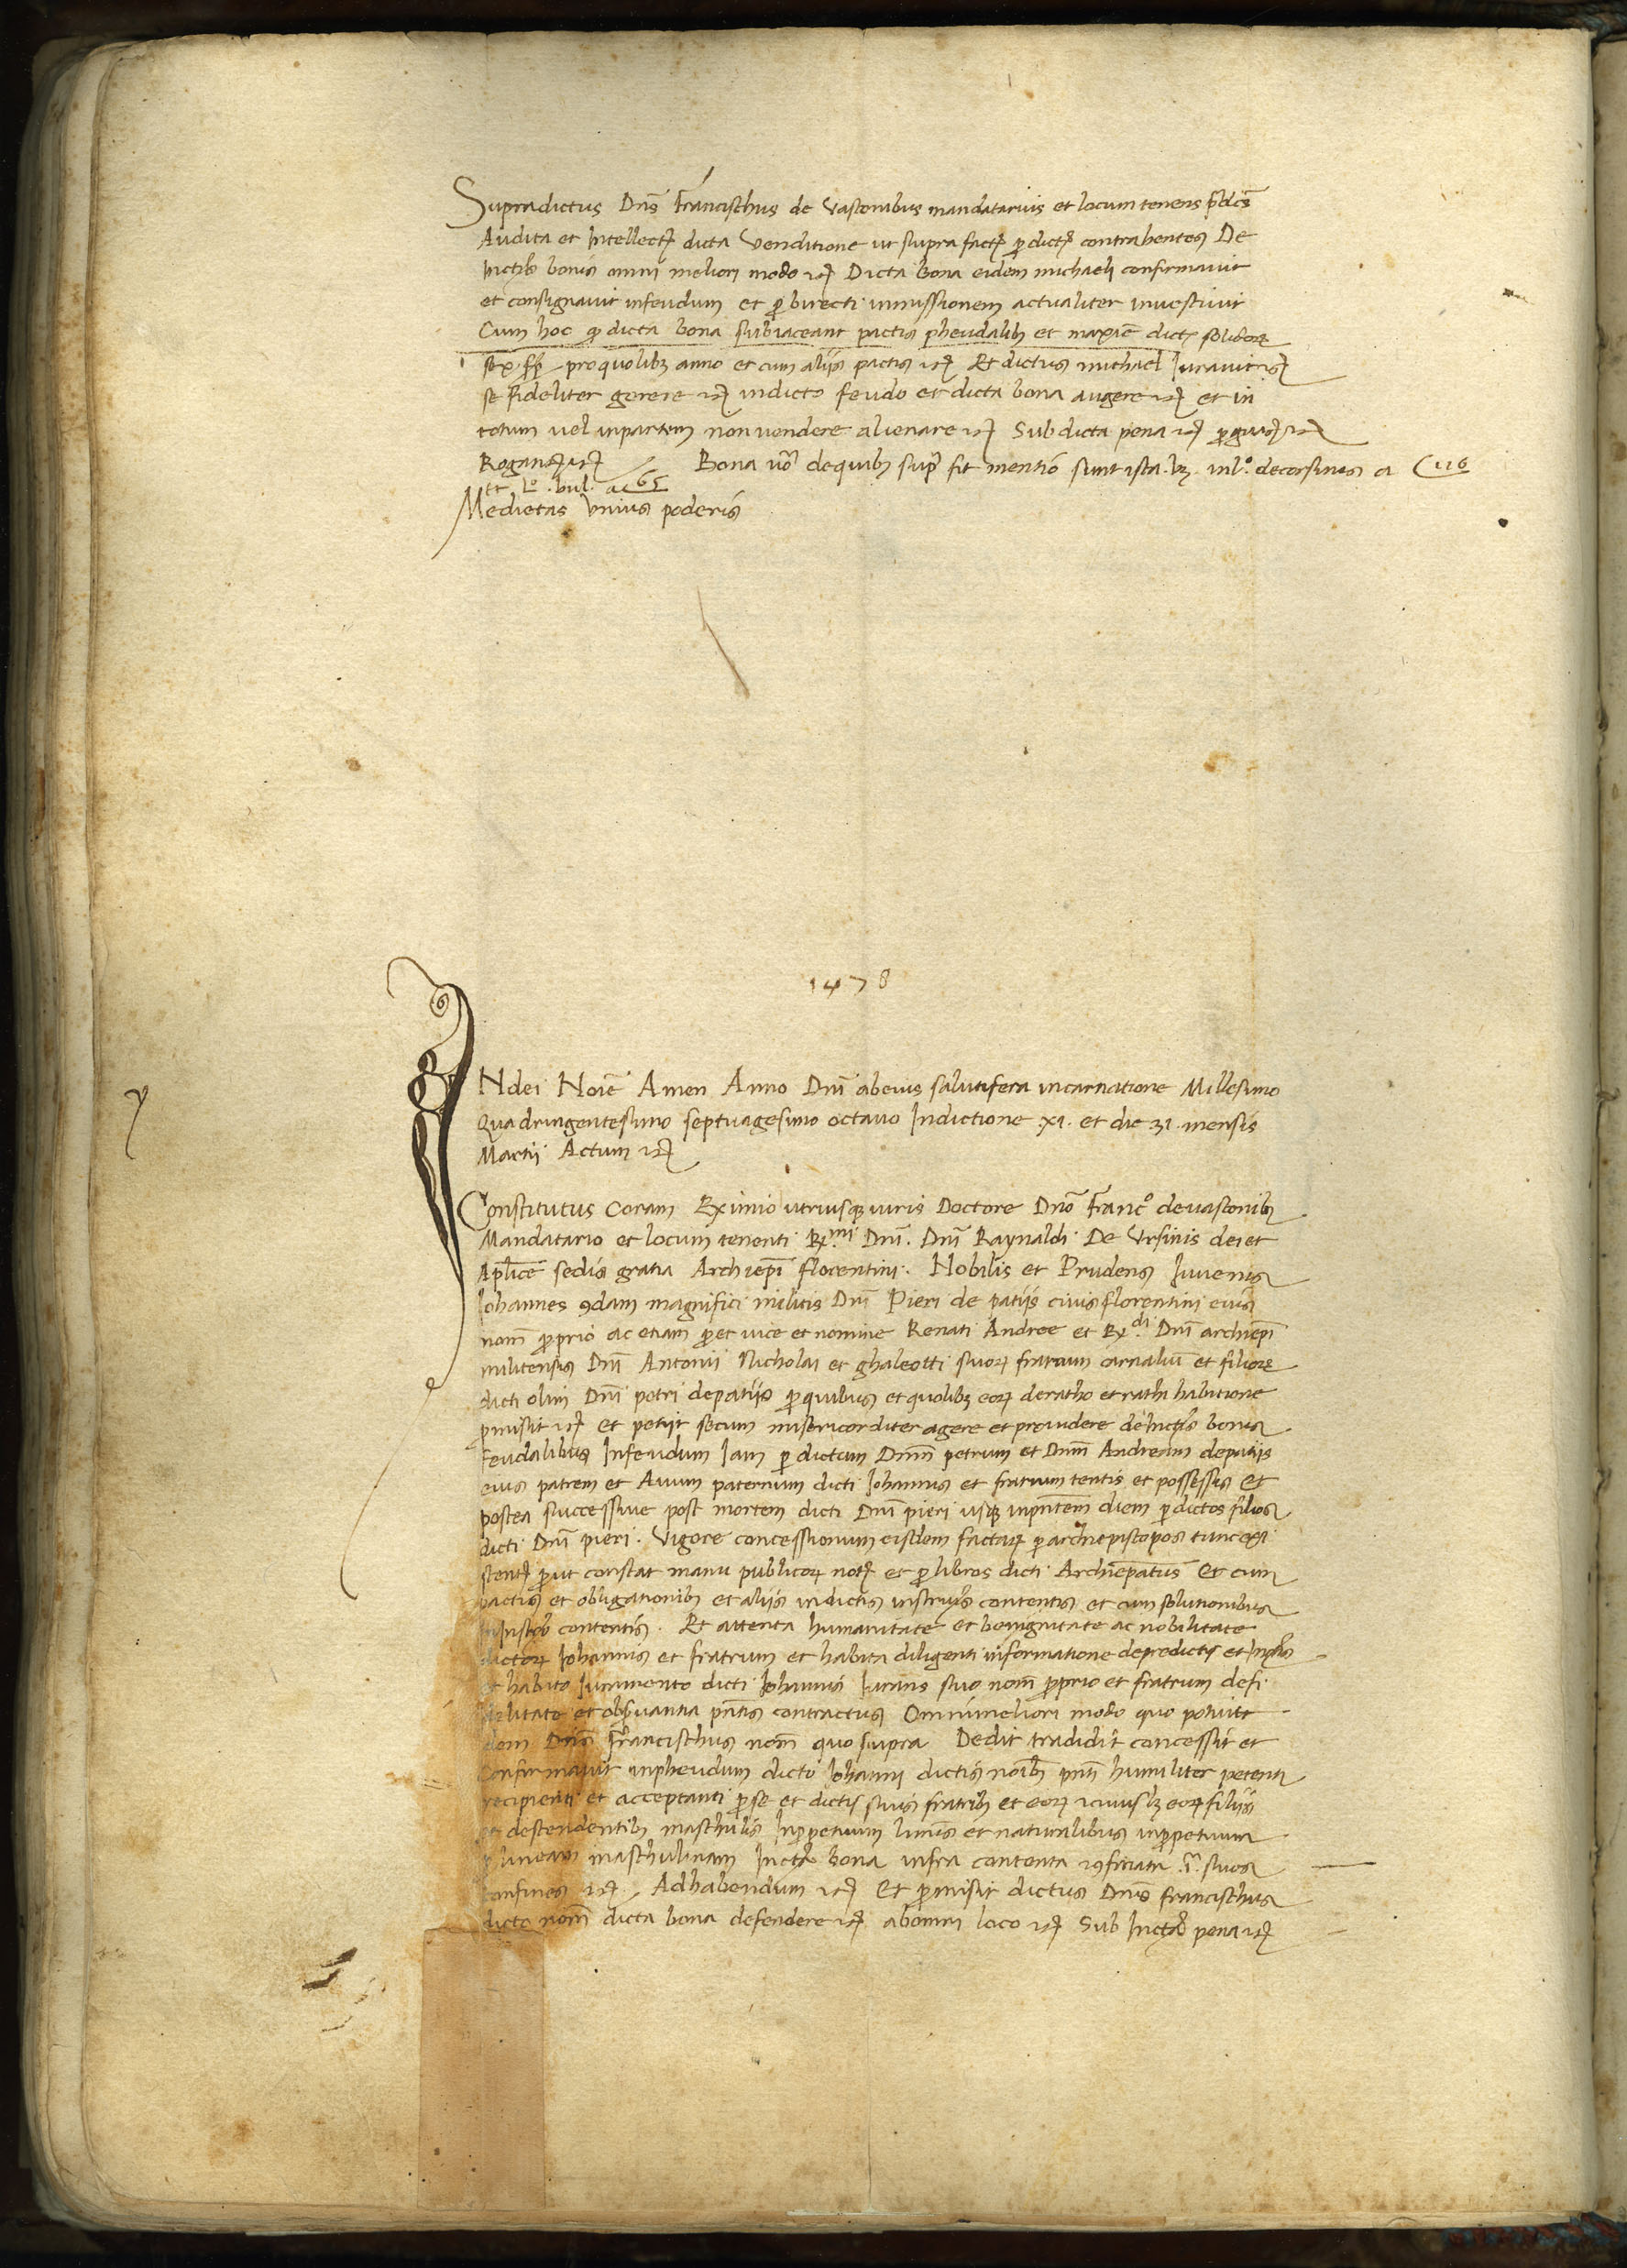 Supradictus Dns̄ Francischus de Vastonibus mandatarius et locum tenens p̄dcs̄
Audita et Intellectꝭ dicta Venditione ut supra factꝭ ꝑ dictꝭ contrahentes De
Inctis bonis omni meliori modo ꝛcꝭ Dicta Bona eidem michaeli confirmauit
et consignauit infeudum et ꝑ birecti inmissionem actualiter inuestiuit
Cum hoc ꝙ dicta bona subiaceant pactis pheudalibꝫ et maxīe dictꝭ solidoꝝ
sex fp̄ pro quolibꝫ anno et cum aliis pactis ꝛcꝭ Et dictus michael Iurauit ꝛcꝭ
se fideliter gerere ꝛcꝭ indicto feudo et dicta bona augere ꝛcꝭ et in
totum uel inpartem non uendere alienare ꝛcꝭ Sub dicta pena ꝛcꝭ ꝛcꝭ
Rogansꝛcꝭ Bona uō dequibꝫ supᵃ fit mentiō sunt ista .vꝫ. inl.º decorsinis a C 116
et Lº .bul. ac 65
Medietas Vnius poderis
1478
INdei Noīe Amen Anno Dnī abeius salutifera incarnatione Millesimo
Quadringentesimo septuagesimo octauo Indictione .xi. et die 31 .mensis
Martii Actum ꝛcꝭ
Constitutus Coram Eximio utriusqꝫ iuris Doctore Dnō Francº deuastonibꝫ
Mandatario et locum tenenti Rx.ᵐⁱ Dnī. Dnī Raynaldi De Vrsinis dei et
Apl̄ice sedis gratia Archiepī florentini. Nobilis et Prudens Iuuenis
Iohannes ꝯdam magnifici militis Dnī Pieri de patiis ciuis florentini eius
nom̄ ꝓprio ac etiam ꝓ et uice et nomine Renati Andree et Rx.ᵈⁱ Dnī archiepī
militensis Dnī Antonii Nicholai et ghaleotti suoꝝ fratrum carnaliū et filioꝝ
dicti olim Dnī petri depatiis ꝓ quibus et quolibꝫ eoꝝ deratho et rathi habitione
ꝓmisit ꝛcꝭ et petiit secum misericorditer agere et prouidere de Inctis bonis
feudalibus Infeudum Iam ꝑ dictum Dnm̄ petrum et Dnm̄ Andream depatiis
eius patrem et Auum paternum dicti Iohannis et fratrum tentis et possessis Et
postea successiue post mortem dicti Dnī pieri usqꝫ inpn̄tem diem ꝑ dictos filios
dicti Dnī pieri. Vigore concessionum eisdem factaꝝ ꝑ archiepiscopos tunc exi
stentꝭ ꝓut constat manu publicoꝝ notꝭ et ꝑ libros dicti Archiepatus Et cum
pactis et obligationibꝫ et aliis indictis instrutis contentis et cum solutionibus
contentis. Et attenta humanitate et benignitate ac nobilitate
dictoꝝ Iohannis et fratrum et habita diligenti informatione depredictis et Inctis
et habito Iuramento dicti Iohannis Iurans suo nom̄ ꝓprio et fratrum defi
delitate et obseruantia pn̄tis contractus Omnimeliori modo quo potuit
dom Dnīs Francischus nom̄ quo supra Dedit tradidit concessit et
Confirmauit inpheudum dicto Iohanni dictis noībꝫ pn̄ti humiliter petenti
recipienti et acceptanti ꝓ se et dictis suis fratribꝫ et eoꝝ filiis
et descendentibꝫ maschulis Inꝑpetuum et naturalibus inꝑpetuum
ꝑ lineam maschulinam Incta bona infra contenta ꝛ ꝯfinata .i. suos
confines ꝛcꝭ Adhabendum ꝛcꝭ Et ꝓmisit dictus Dnīs francischus
dicto nom̄ dicta bona defendere ꝛcꝭ abomni loco ꝛcꝭ Sub Incta pena ꝛcꝭ